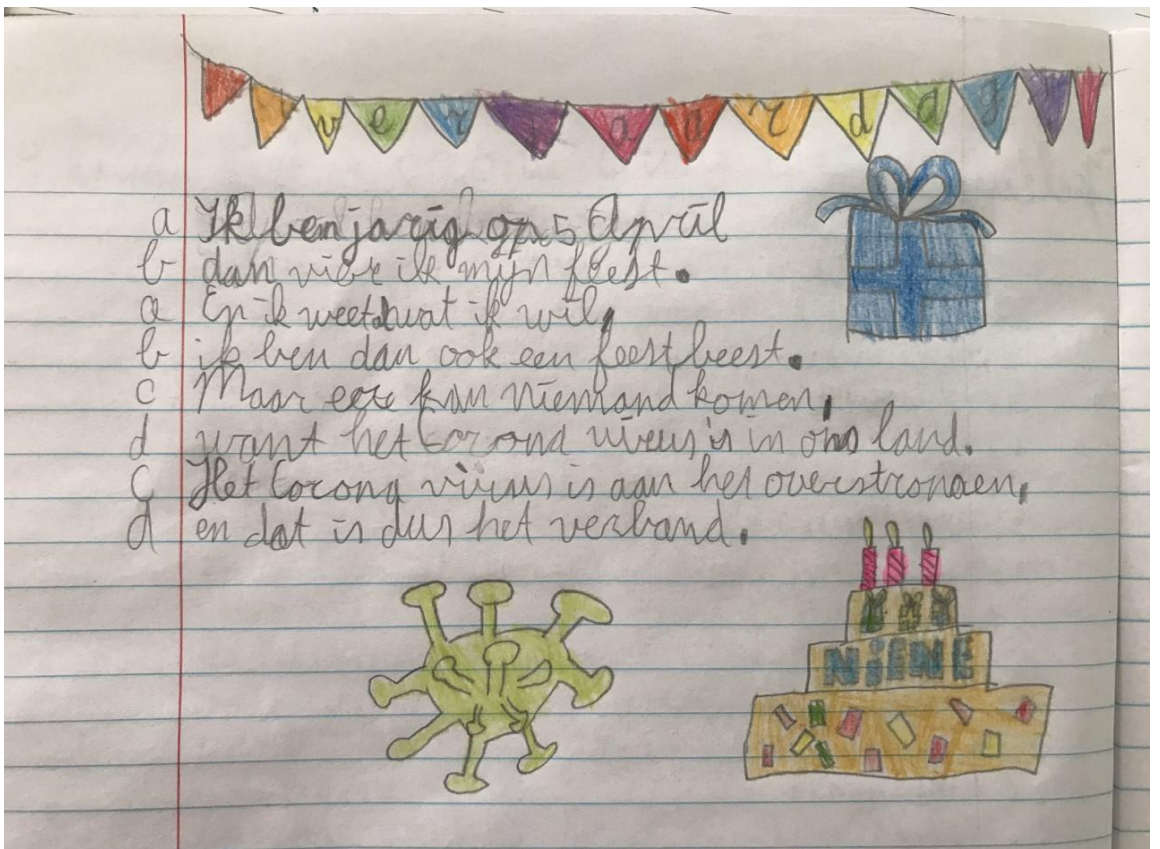 verjaardag
a Ik ben jarig op 5 April
b dan vier ik mijn feest.
a En ik weet wat ik wil,
b ik ben dan ook een feestbeest.
c Maar kan niemand komen,
d want het corona virus is in ons land.
c Het Corona virus is aan het overstromen,
d en dat is dus het verband.
NiENE